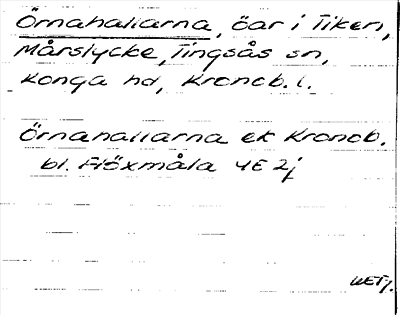 Örnahallarna, öar i Tiken,
Mårslycke, Tingsås sn,
Konga hd, Kronob. l.
Örnahallarna ek Kronob.
bl. Flöxmåla 4E 2j